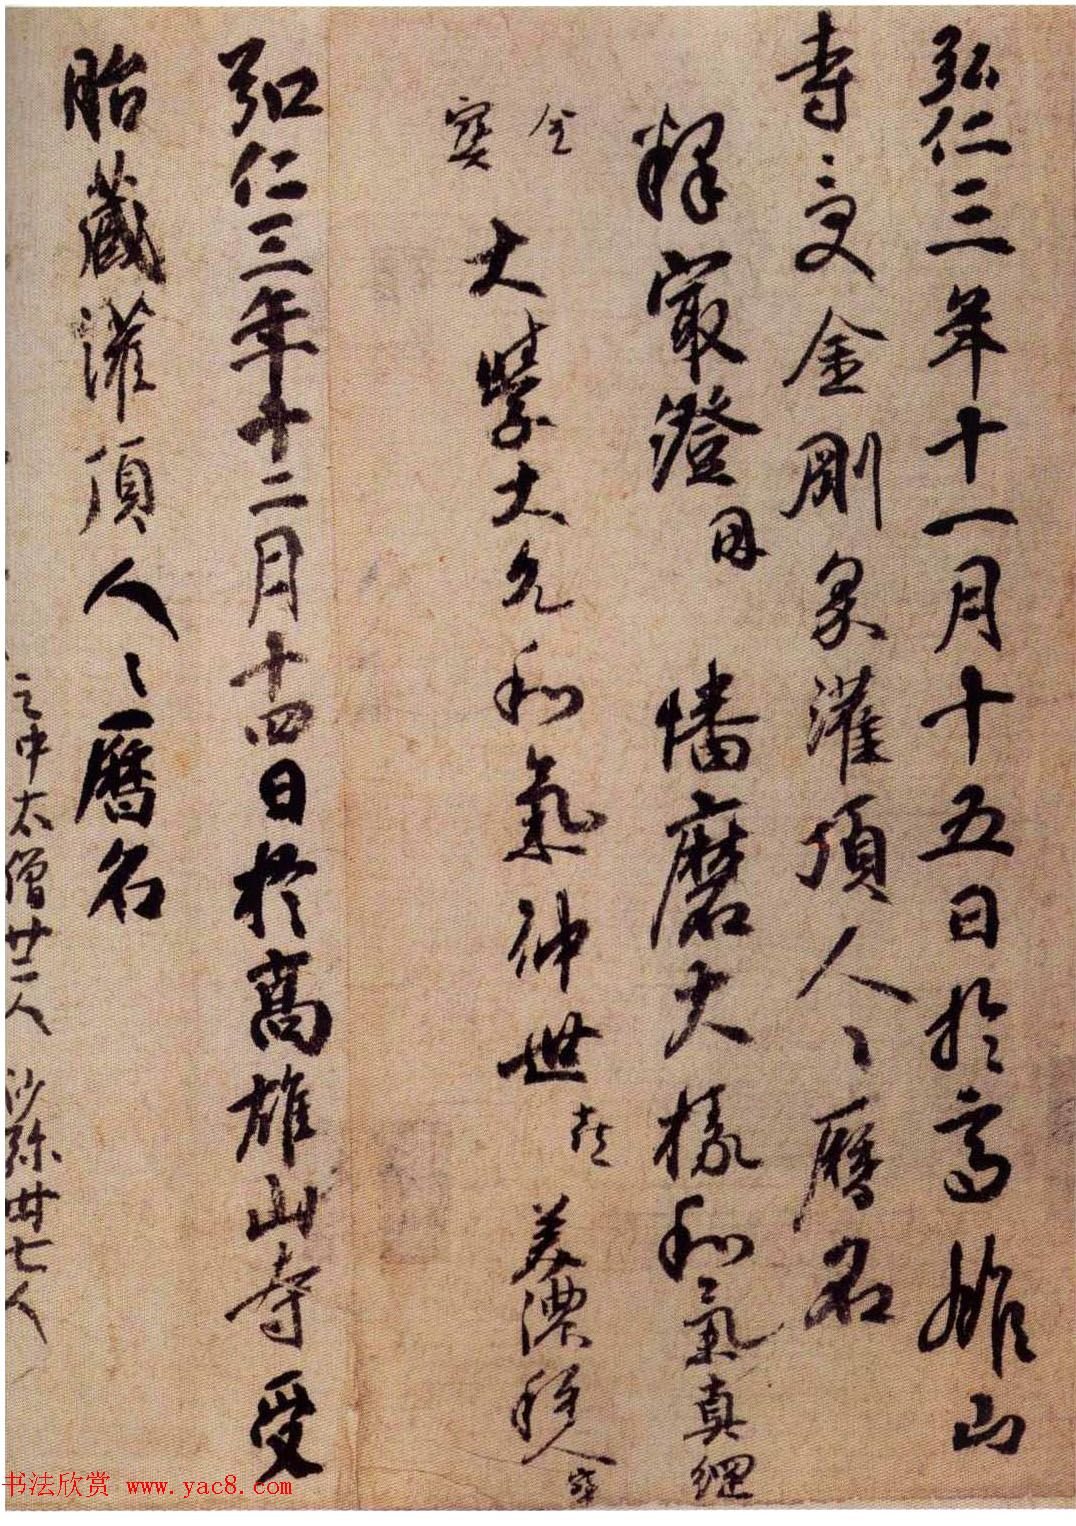 弘仁三年十一月十五日於高雄山
寺受金剛界灌頂人々曆名
釋冣澄 因
幡磨大掾和氣真綱
金
寶
大學大允和氣仲世 喜
美濃種人 寶
弘仁三年十二月十四日於高雄山寺受
胎藏灌頂人々曆名
之中太僧廿一人 沙弥卅七人
书法欣赏 www.yac8.com